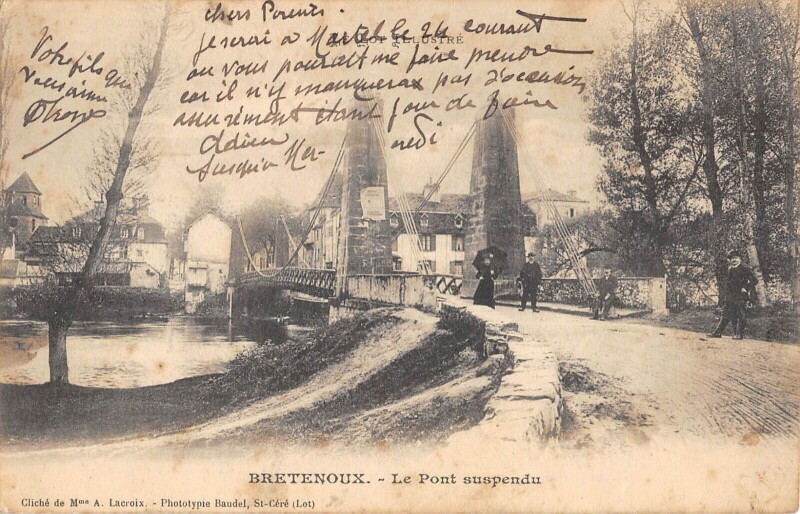 chers Parents.
je serai à Martel le 24 courant
LE LOT ILLUSTRÉ
ou vous pourait me faire prendre
car il n'y manquerax pas d'occasion
assurément étant jour de foire
Adieu
Jusqu'a Mer-
redi
Votre fils qui
vous aime
BRETENOUX. - Le Pont suspendu
Cliché de Mme A. Lacroix. - Phototypie Baudel, St-Céré (Lot)